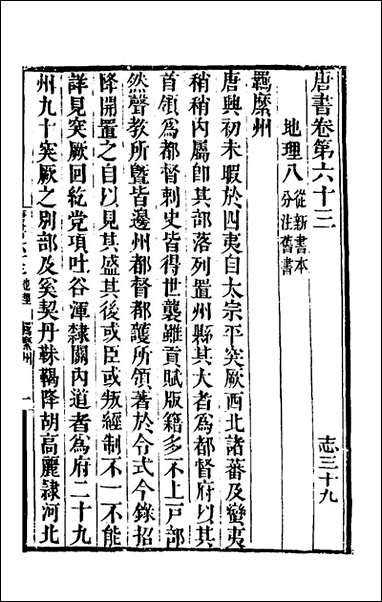 唐書卷第六十三　志三十九
地理八　從新書本
分注舊書
羈縻州
唐興初未暇於四夷自太宗平突厥西北諸蕃及蠻夷
稍稍內屬卽其部落列置州縣其大者爲都督府以其
首領爲都督刺史皆得世襲雖貢賦版籍多不上戸部
然聲敎所曁皆邊州都督都護所領著於令式今錄招
降開置之自以見其盛其後或臣或叛經制不一不能
詳見突厥回紇党項吐谷渾隸關內道者爲府二十九
州九十突厥之別部及奚契丹靺鞨降胡高麗隸河北
地理　羈縻州　一